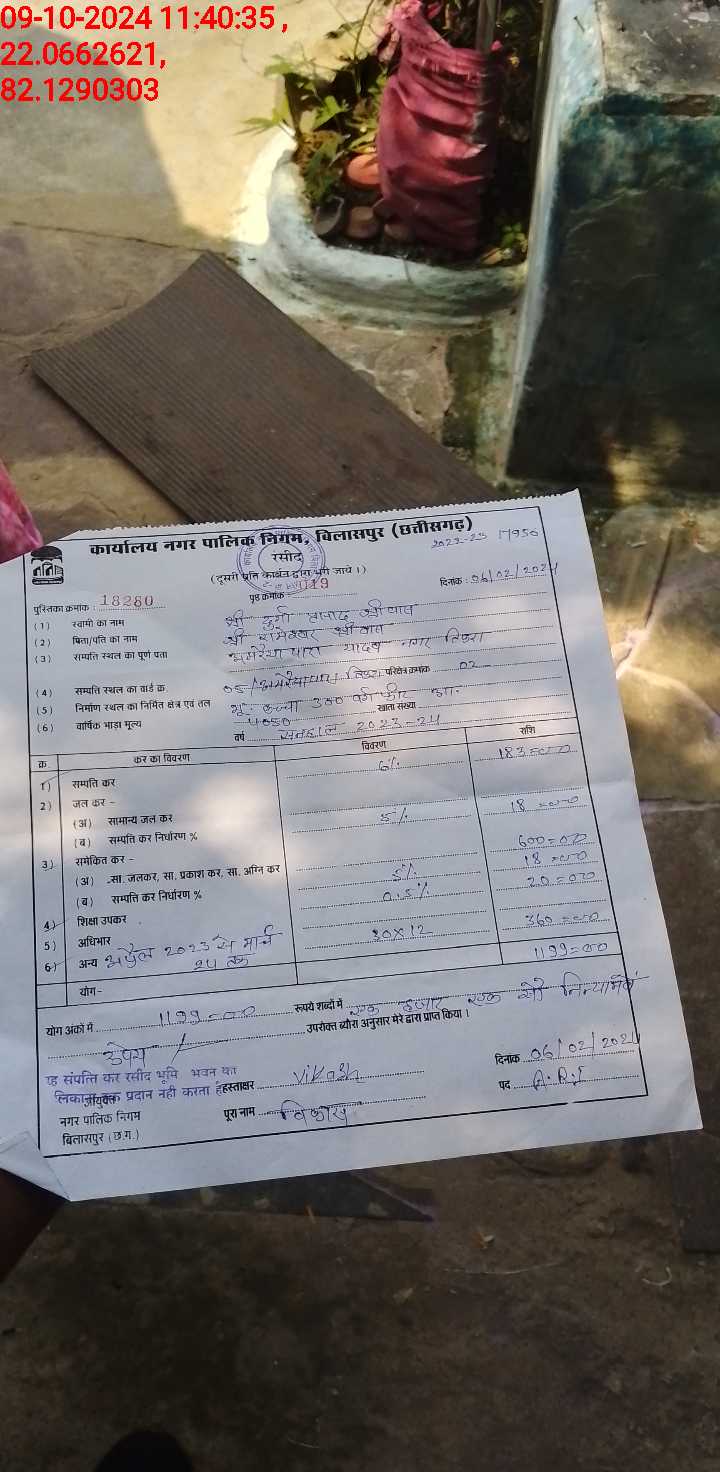 09-10-2024 11:40:35 ,
22.0662621,
82.1290303
कार्यालय नगर पालिक निगम, बिलासपुर (छत्तीसगढ़)
2022-23 17950
रसीद
(दूसरी प्रति कार्बन द्वारा भरी जावे ।)
पुस्तिका क्रमांक : 18280 पृष्ठ क्रमांक 019 दिनांक : 06/02/2024
(1) स्वामी का नाम श्री दुर्गा प्रसाद श्रीवास
(2) पिता/पति का नाम श्री रामेश्वर श्रीवास
(3) सम्पति स्थल का पूर्ण पता अमरैया पारा यादव नगर तिफरा
(4) सम्पति स्थल का वार्ड क्र. 05/अमरैयापारा तिफरा परिक्षेत्र क्रमांक 02
(5) निर्माण स्थल का निर्मित क्षेत्र एवं तल भू. कच्चा 300 वर्ग फीट आ.
(6) वार्षिक भाड़ा मूल्य 4050 खाता संख्या
वर्ष सनहाल 2023-24
क्र कर का विवरण विवरण राशि
1) सम्पति कर 6% 183=00
2) जल कर -
(अ) सामान्य जल कर 5% 18=00
(ब) सम्पति कर निर्धारण %
3) समेकित कर - 600=00
(अ) सा. जलकर, सा. प्रकाश कर, सा. अग्नि कर 5% 18=00
(ब) सम्पति कर निर्धारण % 0.5% 20=00
4) शिक्षा उपकर
5) अधिभार 30x12 360=00
6) अन्य अप्रैल 2023 से मार्च 24 तक
योग- 1199=00
योग अंकों में 1199=00 रूपये शब्दों में एक हजार एक सौ निन्यानबे
रूपये उपरोक्त ब्योरा अनुसार मेरे द्वारा प्राप्त किया ।
यह संपत्ति कर रसीद भूमि भवन का दिनांक 06/02/2024
प्रदान नही करता है हस्ताक्षर Vikash पद A.R.I
आयुक्त
नगर पालिक निगम पूरा नाम विकास
बिलासपुर (छ.ग.)